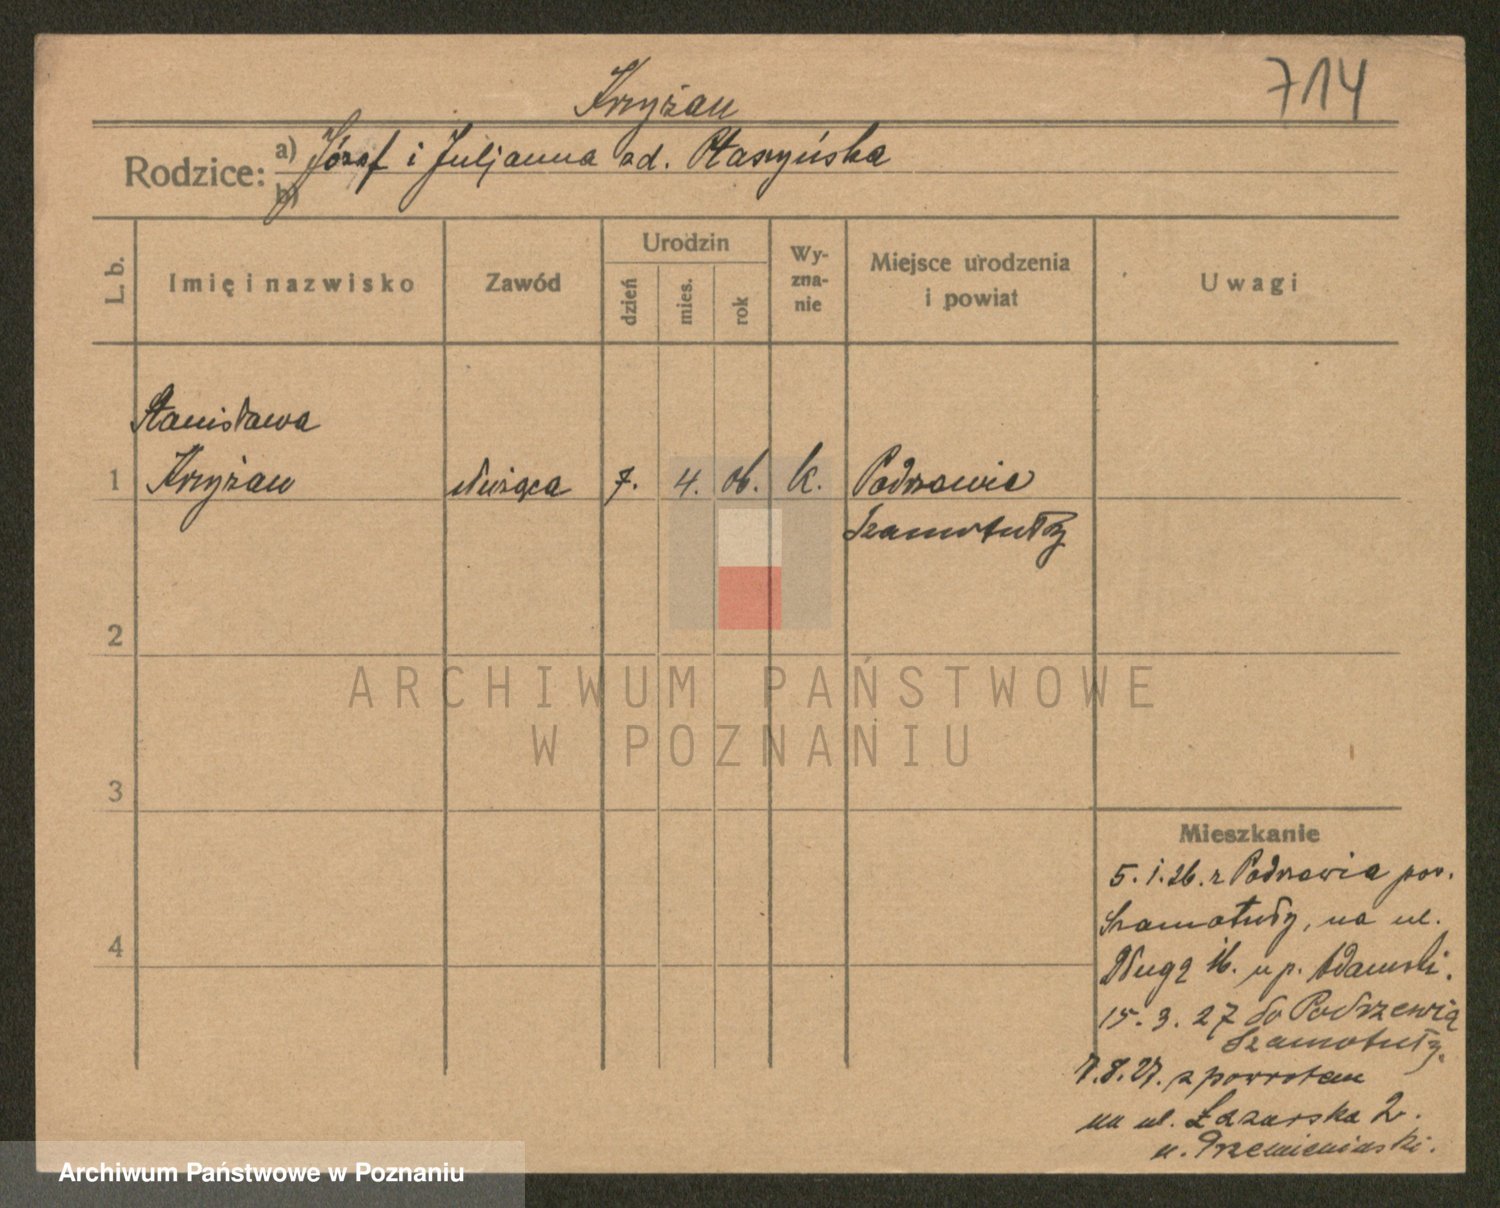 714
Krzyżan
Rodzice: a) Józef i Juljanna od. Ptaszyńska
b)
L. b.
Imię i nazwisko
Zawód
Urodzin
dzień
mies.
rok
Wy-
zna-
nie
Miejsce urodzenia
i powiat
Uwagi
Stanisława
1 Krzyżan służąca 7. 4. 06. k. Podrzewie
Szamotuły
2
3
4
ARCHIWUM PAŃSTWOWE
W POZNANIU
Mieszkanie
5.1.26. z Podrzewia pow.
Szamotuły, na ul.
Długą 16. u p. Adamski.
15.3.27 do Podrzewia
Szamotuły.
7.8.27. z powrotem
na ul. Łazarska 2.
u.
Archiwum Państwowe w Poznaniu